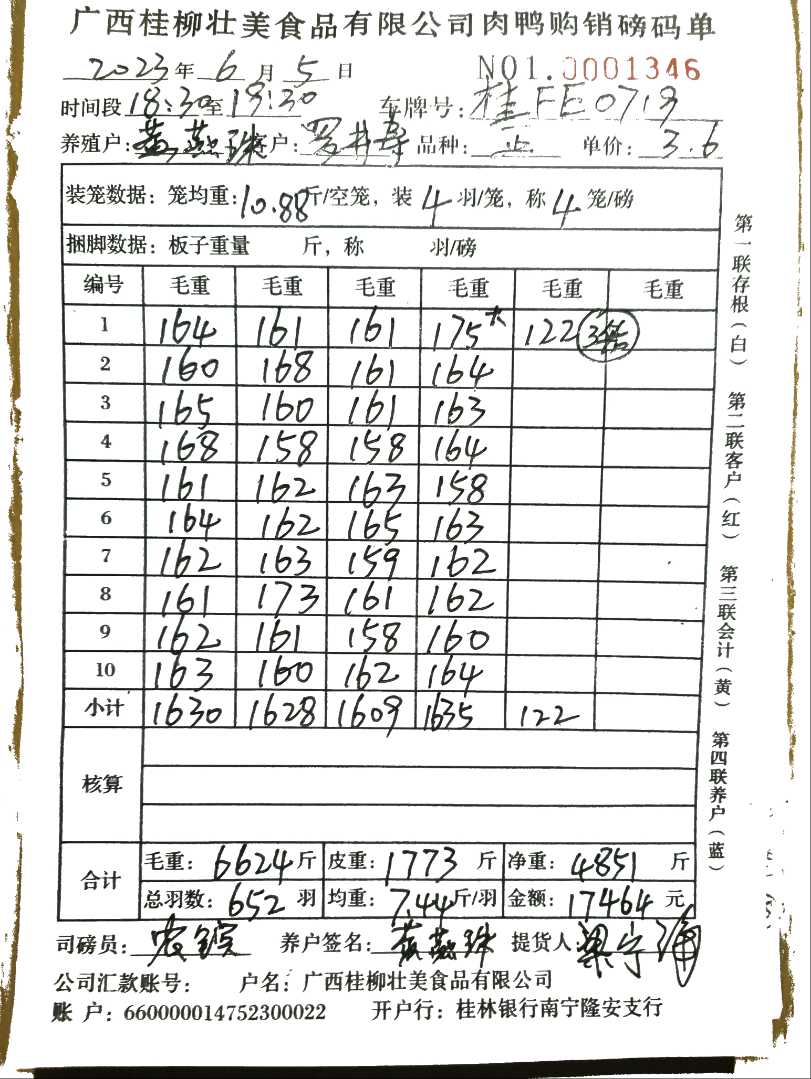 广西桂柳壮美食品有限公司肉鸭购销磅码单
2023年6月5日 NO1.0001346
时间段18:30至19:30 车牌号:桂FE0719
养殖户:黄燕球 客户: 品种: 正 单价:3.6
装笼数据:笼均重:10.88斤/空笼,装4羽/笼,称4笼/磅
捆脚数据:板子重量 斤,称 羽/磅
编号 毛重 毛重 毛重 毛重 毛重 毛重
1 164 161 161 175 122
2 160 168 161 164
3 165 160 161 163
4 168 158 158 164
5 161 162 163 158
6 164 162 165 163
7 162 163 159 162
8 161 173 161 162
9 162 161 158 160
10 163 160 162 164
小计 1630 1628 1609 1635 122
核算
合计 毛重:6624斤 皮重:1773斤 净重:4851斤
总羽数:652羽 均重:7.44斤/羽 金额:17464元
司磅员: 养户签名:黄燕球 提货人
公司汇款账号: 户名:广西桂柳壮美食品有限公司
账 户:660000014752300022 开户行:桂林银行南宁隆安支行
第一联存根(白) 第二联客户(红) 第三联会计(黄) 第四联养户(蓝)